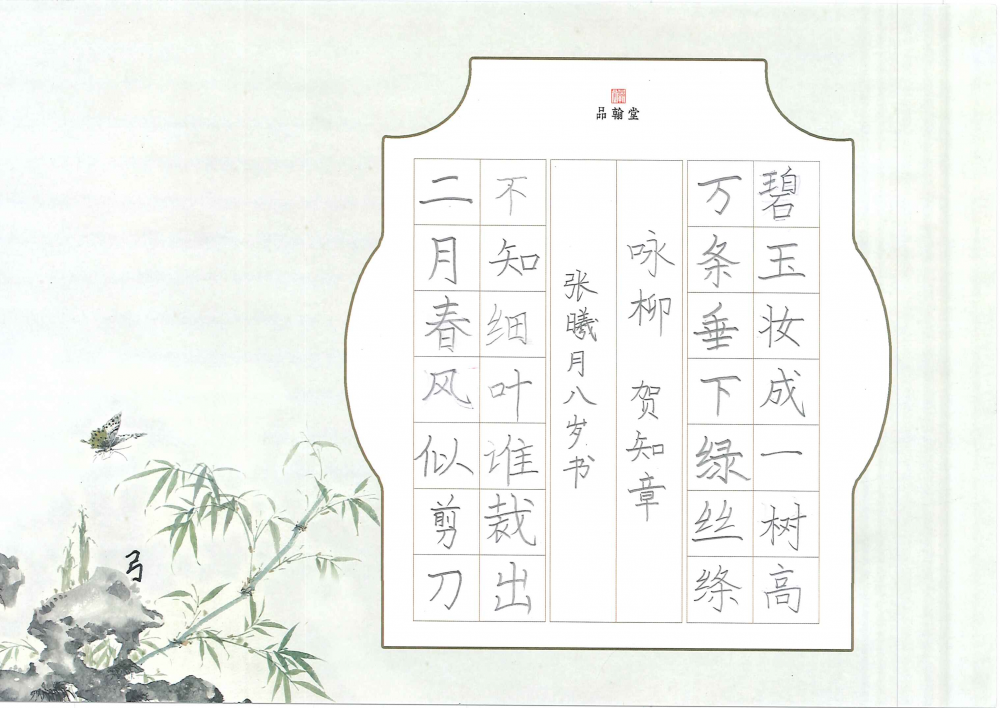 品翰堂
碧玉妆成一树高
万条垂下绿丝绦
咏柳 贺知章
张曦月八岁书
不知细叶谁裁出
二月春风似剪刀
弓